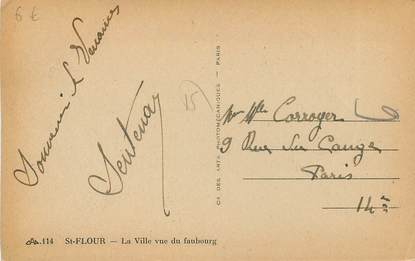 6 €
Souvenir de Vacances
Sentenac
15
CIE DES ARTS PHOTOMÉCANIQUES - PARIS
Mr Mlle Corroyer
9 Rue du Cange
Paris
14
114 St-FLOUR - La Ville vue du faubourg